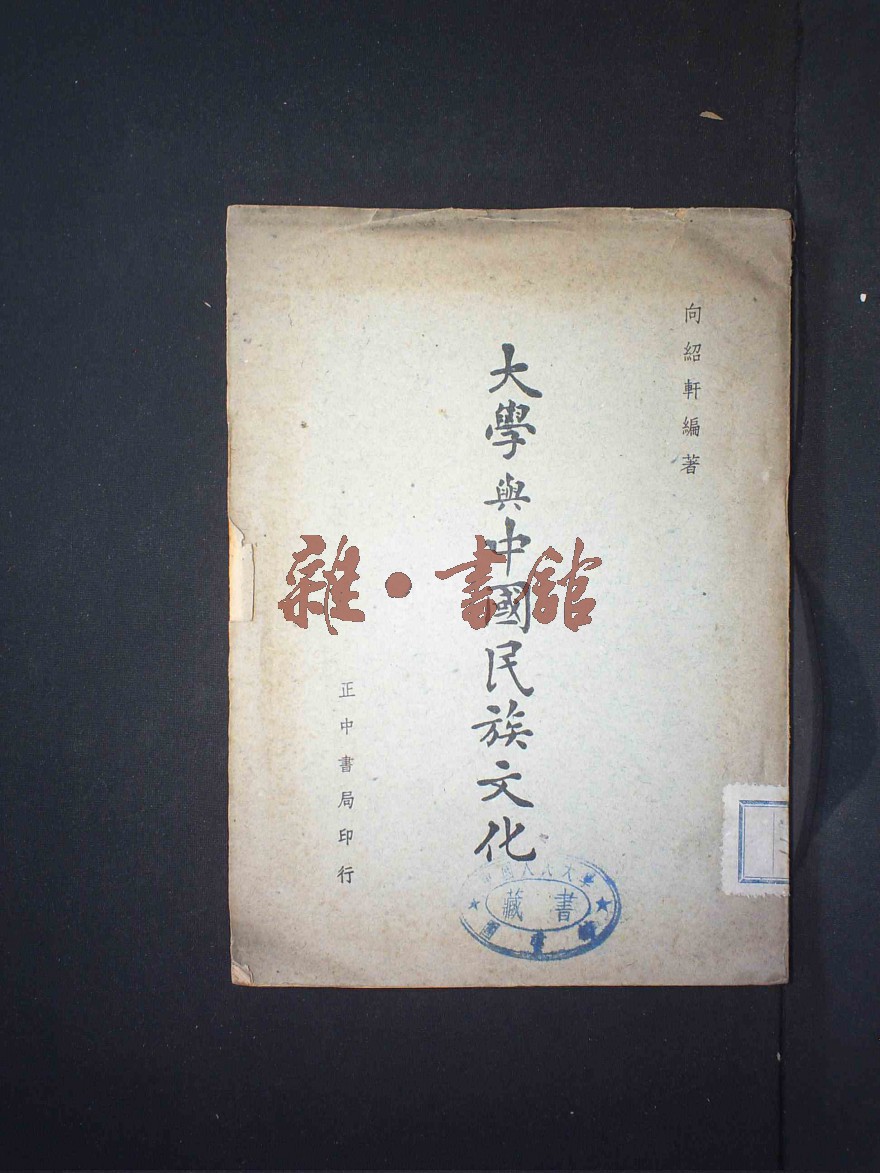 向紹軒編著
大學與中國民族文化
正中書局印行
雜·書館
人民大學
藏書